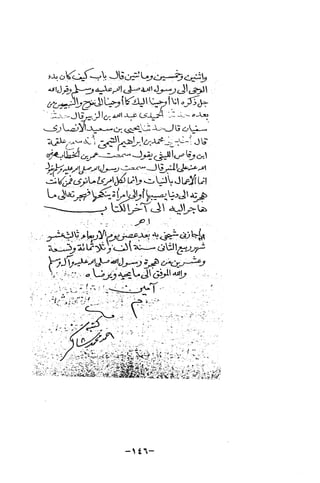 واثنتين وخمسين ومائتين قال باب كيف كان بدء
الوحي الى رسول الله صلى الله عليه وسلم وقول الله
جل ذكره انا أوحينا اليك كما أوحينا الى نوح والنبيين من
بعده حدثنا الحميدي عبد الله بن الزبير قال حدثنا
سفيان قال حدثنا يحيى بن سعيد الأنصاري
قال أخبرني محمد بن ابراهيم التيمي أنه سمع علقمة
ابن وقاص الليثي يقول سمعت عمر بن الخطاب رضي
الله عنه على المنبر قال سمعت رسول الله صلى الله عليه وسلم يقول
انما الأعمال بالنيات وانما لكل امرئ ما نوى فمن كانت
هجرته الى دنيا يصيبها أو الى امرأة ينكحها فهجرته الى ما
هاجر اليه الى آخر الكتاب
اهـ
وأجازني شيخي به بعد عصر يوم الاربعاء ثالث عشر
شهر ربيع الثاني سنة ألف وثلاثمائة وتسعة
وعشرين من هجرة رسول الله صلى الله عليه وآله وسلم
والله الموفق الى ما يحبه ويرضاه
آمين
م
كتبه
احمد محمد شاكر
-١٤٦-